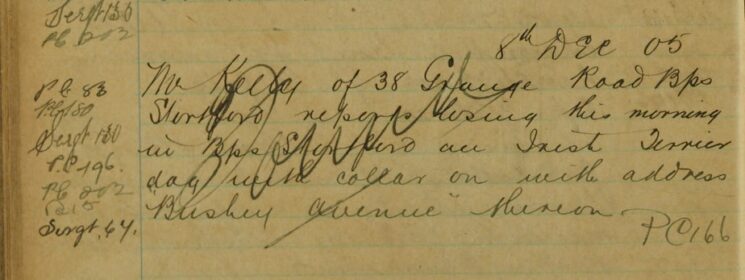 Sergt 130
PC 202
8th Dec 05
PC 83
Mr Kelly of 38 Grange Road Bps
PC 180
Stortford reports losing this morning
Sergt 130
in Bps Stortford an Irish Terrier
PC 196.
dog with collar on with address
PC 202
215
Bushey avenue thereon
Sergt. 64.
PC 166
Found